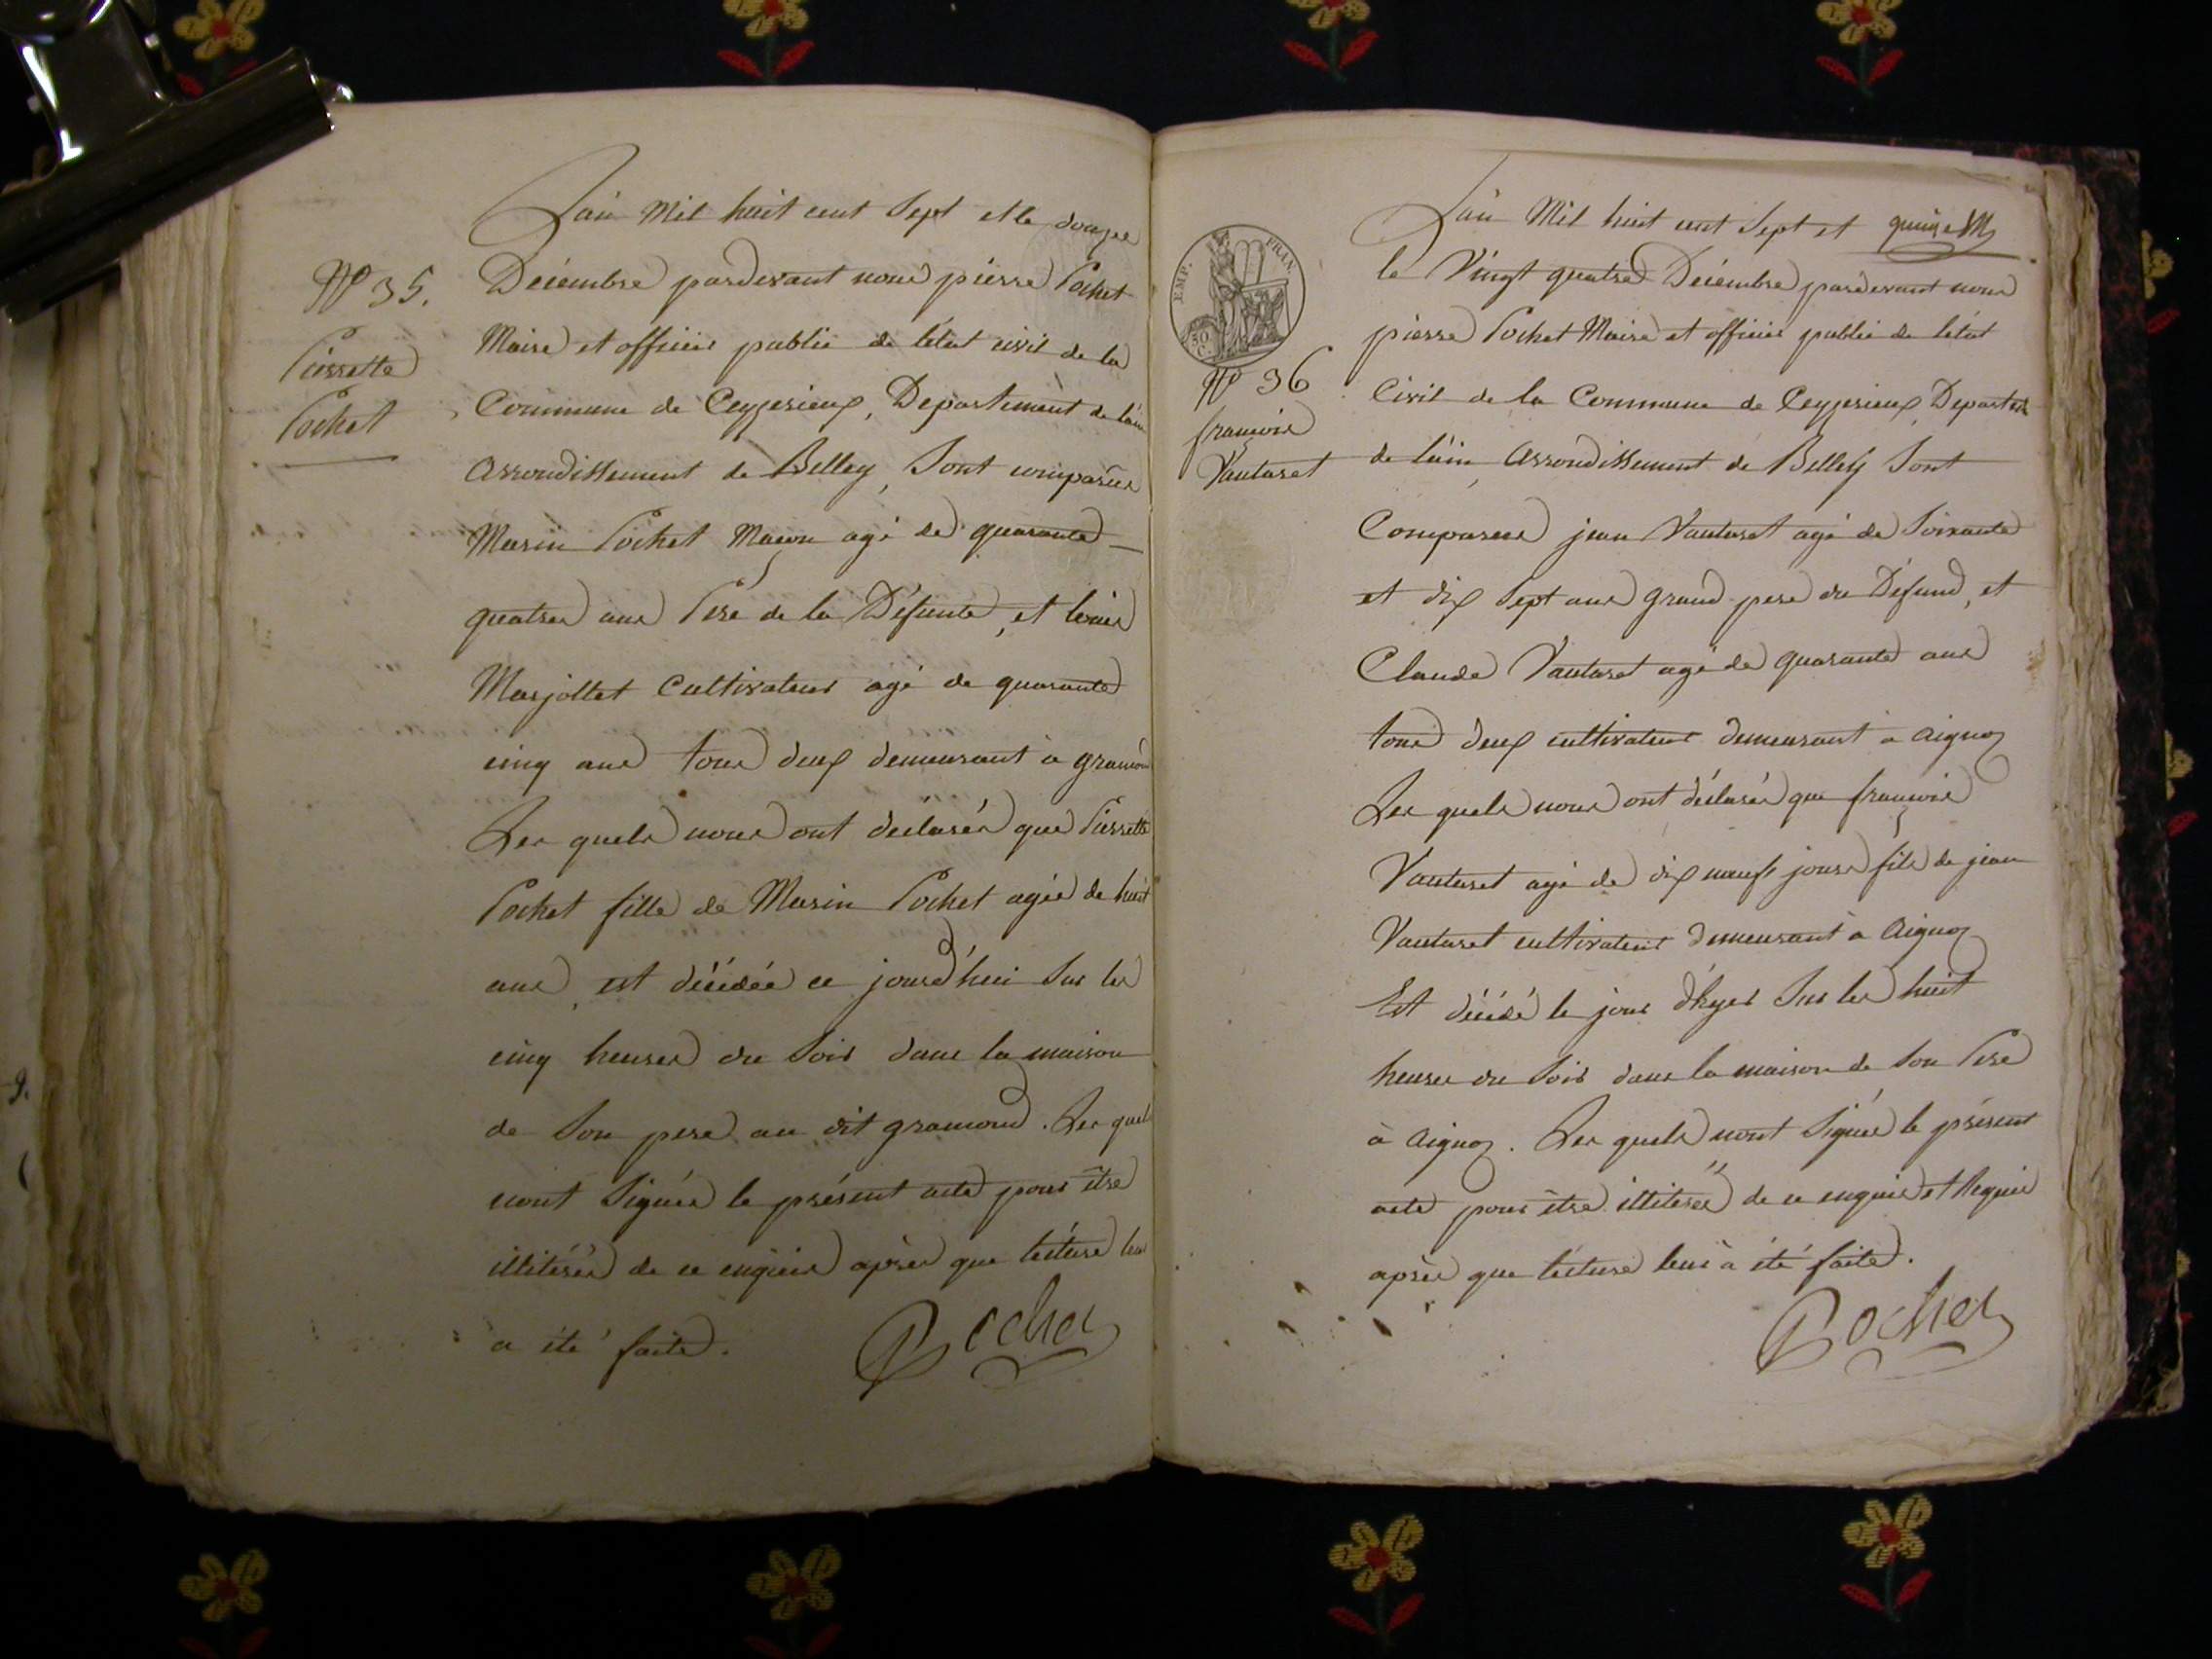 N° 35.
Pierrette
Pochet
L'an Mil huit cent Sept et le douze
Décembre pardevant nous pierre Pochet
Maire et officier public de l'état civil de la
Commune de Ceyzerieux, Departement de l'ain
Arrondissement de Belley, Sont comparus
Marin Pochet Maçon agé de quarante
quatre ans Pere de la Défunte, et louis
Marjollet Cultivateur agé de quarante
cinq ans tous deux demeurant à gramond
Les quels nous ont déclarés que Pierrette
Pochet fille de Marin Pochet agée de huit
ans, est décédée ce jourd'hui Sur les
cinq heures du Soir dans la maison
de Son pere au dit gramond. Les quels
n'ont Signés le présent acte pour être
illitérés de ce enquis après que lecture leur
a été faite.
Pochet
EMP. FRAN.
50 C.
N° 36
françois
Vautaret
L'an Mil huit cent Sept et
le Vingt quatre Décembre pardevant nous
pierre Pochet Maire et officier public de l'état
Civil de la Commune de Ceyzerieux, Departemt
de l'ain, Arrondissement de Belley Sont
Comparus jean Vautaret agé de Soixante
et dix Sept ans grand pere du Défund, et
Claude Vautaret agé de quarante ans
tous deux cultivateurs demeurant à aignoz
Les quels nous ont déclarés que françois
Vautaret agé de dix neuf jours fils de jean
Vautaret cultivateur demeurant à Aignoz
Est décédé le jour d'hyer Sur les huit
heures du Soir dans la maison de Son Pere
à aignoz. Les quels n'ont Signés le présent
acte pour être illiterés de ce enquis et Requis
après que lécture leur à été faite.
Pochet
9.